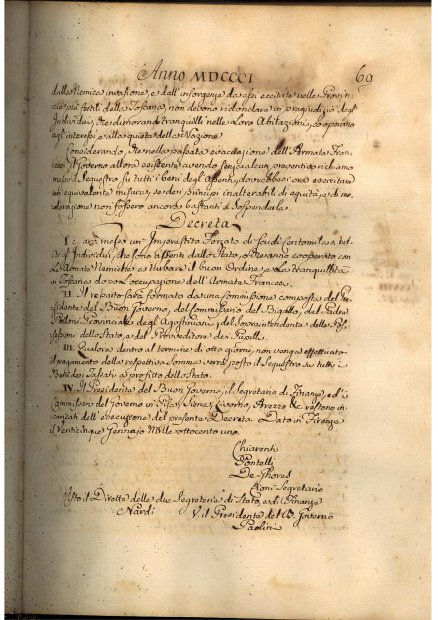 Anno MDCCCI 69
dalla Nemica invasione, e dall'insorgenza da essi eccitata nelle Provin-
cie più fertili della Toscana, non devono ridondare in pregiudizio degl'
Individui, che dimorando tranquilli nelle Loro Abitazioni, cooperano
agl'interessi e alla quiete della Nazione
Considerando, che nella passata evacuazione dell'Armata Fran-
cese il Governo allora esistente avendo senz'alcun preventivo richiamo
messo il Sequestro su tutti i beni degl'Assenti, dovrebbesi ora esercitare
un'equivalente misura, se dei principj inalterabili di equità, e di mo-
derazione non fossero ancora bastanti a sospenderla.
Decreta
I. Sarà messo un Imprestito Forzato di Scudi Centomila a tut-
ti gl'Individui, che sono assenti dallo Stato, o che anno cooperato con
l'Armata Nemica a turbare il buon Ordine, e la tranquillità
in Toscana dopo l'occupazione dell'Armata Francese.
II. Il reparto sarà formato da una Commissione composta del Pre-
sidente del Buon Governo, del Commissario del Bigallo, del Padre
Paloni Provinciale degli Agostiniani, del Sopraintendente delle Pos-
sessioni dello Stato, e del Provveditore dei Pupilli.
III. Qualora dentro il termine di otto giorni, non venga effettuato
il pagamento della respettiva Somma verrà posto il Sequestro su tutti i
Beni dei Tassati a profitto dello Stato.
IV. Il Presidente del Buon Governo, il Segretario di Finanze, ed i
Commissarj del Governo in Pisa, Siena, Livorno, Arezzo &c. restono in-
caricati dell'esecuzione del presente Decreto. Dato in Firenze
il Venticinque Gennajo Mille ottocento uno.
Chiarenti
Pontelli
De Ghores
Roni Segretario
Visto il Direttore delle due Segreterie di Stato, e di Finanze
Nardi V. il Presidente del B. Governo
Paolini